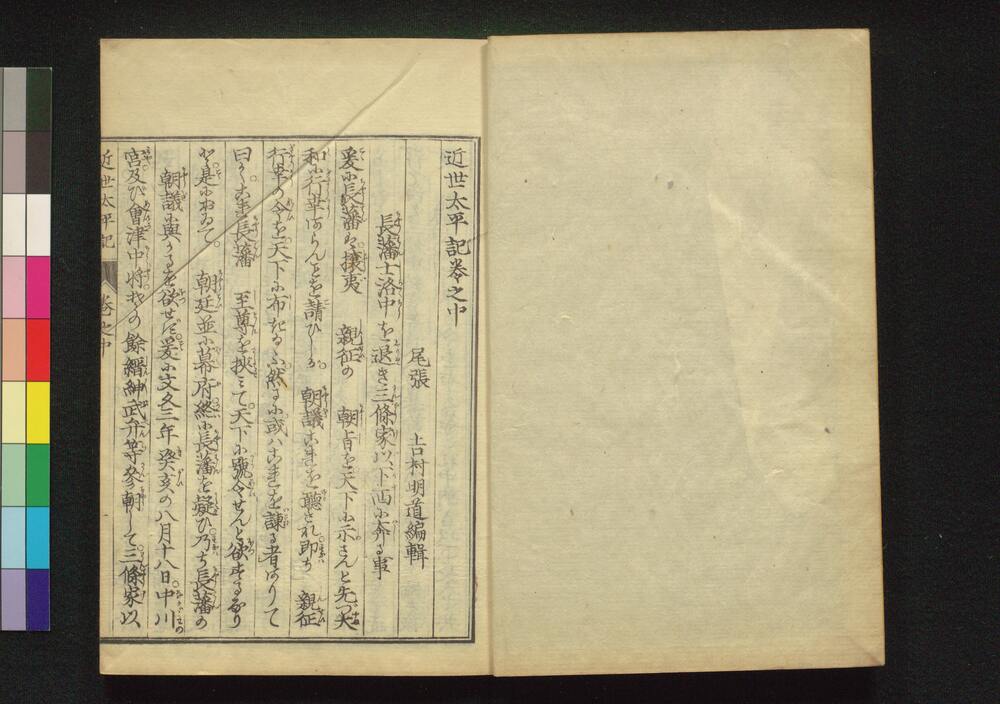 近世太平記巻之中
尾張 吉村明道編輯
長藩士洛中を退き三條家以下西に奔る事
爰に長藩は攘夷 親征の 朝旨を天下に示さんと先づ大
和に行幸あらんとを請ひしが。 朝議これを聴され即ち 親征
行幸の令を天下に布たる。然るに或ハこれを諌る者ありて
曰く。これ長藩 至尊を挟ミて天下に號令せんと欲するなり
と是において。 朝廷並に幕府終に長藩を疑ひ乃ち長藩の
朝議に與かるを欲せず爰に文久三年癸亥の八月十八日中川
宮及び會津中将其の餘縉紳武弁等参朝して三條家以
近世太平記 巻之中